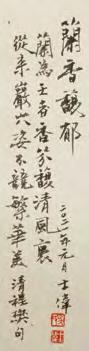 蘭香馥郁
蘭為王者香芬馥清風裏
從来巖穴姿不競繁華美 清程樊句
二〇二一年元月 士偉